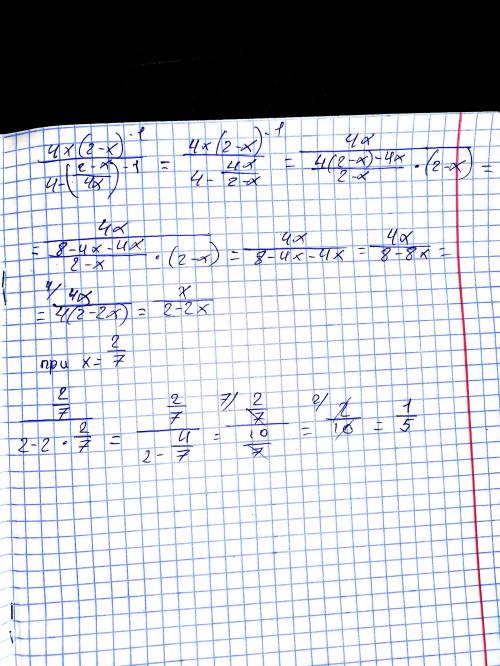 \frac{4x(2-x)^{-1}}{4-\left(\frac{2-x}{4x}\right)^{-1}} = \frac{4x(2-x)^{-1}}{4-\frac{4x}{2-x}} = \frac{4x}{\frac{4(2-x)-4x}{2-x} \cdot (2-x)} =
= \frac{4x}{\frac{8-4x-4x}{2-x} \cdot (2-x)} = \frac{4x}{8-4x-4x} = \frac{4x}{8-8x} =
= \frac{4/ 4x}{4(2-2x)} = \frac{x}{2-2x}
при x = \frac{2}{7}
\frac{\frac{2}{7}}{2-2 \cdot \frac{2}{7}} = \frac{\frac{2}{7}}{2-\frac{4}{7}} = 7/ \frac{\frac{2}{7}}{\frac{10}{7}} = 2/ \frac{2}{10} = \frac{1}{5}